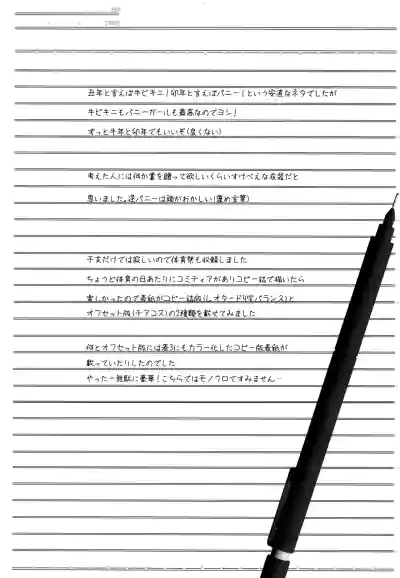 丑年と言えば牛ビキニ！卯年と言えばバニー！という安直なネタでしたが
牛ビキニもバニーガールも最高なのでヨシ！
ずっと牛年と卯年でもいいぞ(良くない)
考えた人には何か賞を贈って欲しいくらいすけべえな衣装だと
思いました。逆バニーは頭がおかしい(褒め言葉)
干支だけでは寂しいので体育祭も収録しました
ちょうど体育の日あたりにコミティアがありコピー誌で描いたら
楽しかったので表紙がコピー誌版(レオタード4容バランス)と
オフセット版(チアコス)の2種類を載せてみました
何とオフセット版には表3にもカラー化したコピー版表紙が
載っていたりしたのでした
やったー無駄に豪華！こちらではモノクロですみません…